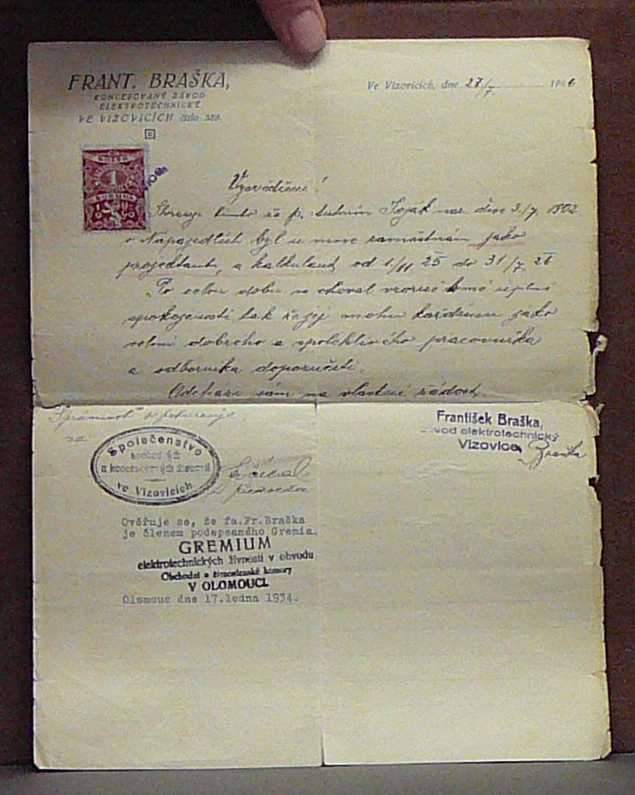 FRANT. BRAŠKA,
KONCESOVANÝ ZÁVOD
ELEKTROTECHNICKÝ
VE VIZOVICÍCH číslo 359.
Ve Vizovicích, dne 27/7 1926
1
Vysvědčení!
že p. Antonín nar. dne 2./7. 1902
v Napajedlích byl u mne zaměstnán jako
projektant, a kalkulant, od 1/11 25 do 31/7 26
Po celou dobu se choval vzorně k mé úplné
spokojenosti tak že jej mohu každému jako
velmi dobrého a spolehlivého pracovníka
a odborníka doporučiti.
Odchází sám na vlastní žádost.
Správnost potvrzuje
za
Společenstvo
a koncesovaných živností
ve Vizovicích
František Braška,
závod elektrotechnický
Vizovice
Braška
Ověřuje se, že fa.Fr.Braška
je členem podepsaného Gremia.
GREMIUM
elektrotechnických živností v obvodu
Obchodní a živnostenské komory
V OLOMOUCI.
Olomouc dne 17.ledna 1934.